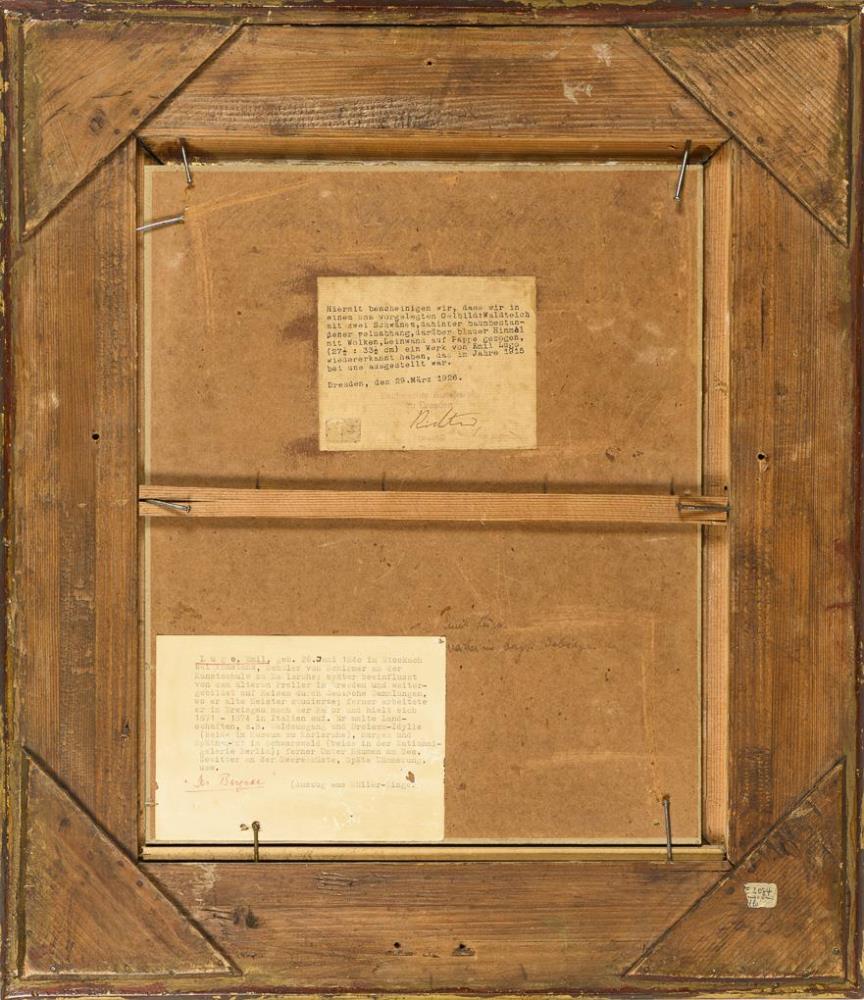 Hiermit bescheinigen wir, dass wir in
einem uns vorgelegten Oelbild:Waldteich
mit zwei Schwänen,dahinter baumbestan-
dener Felsabhang,darüber blauer Himmel
mit Wolken,Leinwand auf Pappe gezogen,
(27½ : 33½ cm) ein Werk von Emil Lugo
wiedererkannt haben, das im Jahre 1915
bei uns ausgestellt war.
Dresden, den 29.März 1926.
zu Dresden
Richter
L u g o, Emil, geb. 26.Juni 1840 in Stockach
bei Konstanz, Schüler von Schirmer an der
Kunstschule zu Karlsruhe; später beeinflusst
von dem älteren Preller in Dresden und weiter-
gebildet auf Reisen durch deutsche Sammlungen,
wo er alte Meister studierte; ferner arbeitete
er in Breisgau nach der Natur und hielt sich
1871 - 1874 in Italien auf. Er malte Land-
schaften, z.B. und Idylle
(beide im Museum zu Karlsruhe), Morgen und
im Schwarzwald (beide in der National-
galerie Berlin); ferner Unter Bäumen am See,
Gewitter an der Meeresküste, Späte Dämmerung,
usw.
(Auszug aus Müller-Singer
Emil Lugo